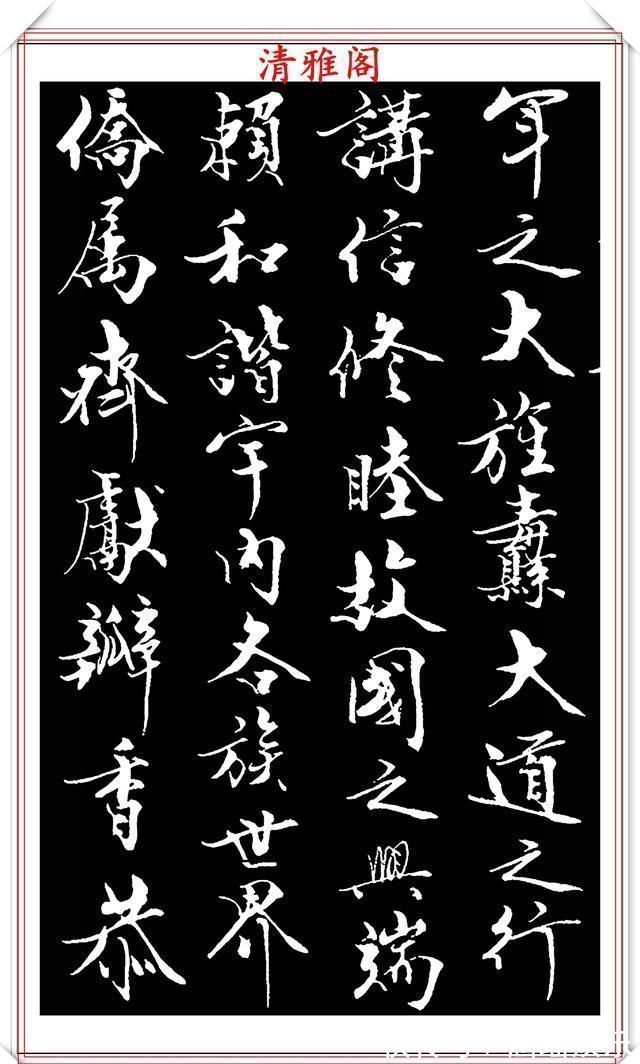 清雅阁
年之大旌纛大道之行
講信修睦故國之興端
賴和諧宇内各族世界
僑属齊獻瓣香恭